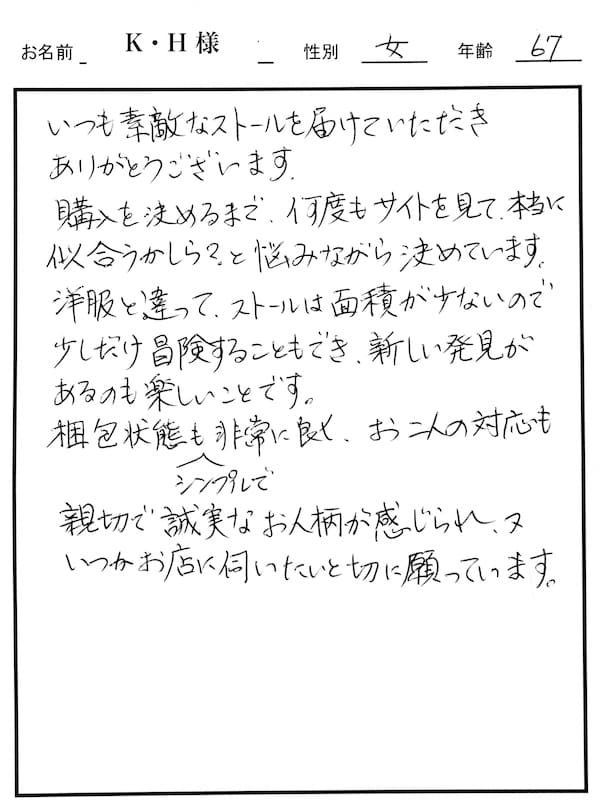 お名前 K・H様 性別 女 年齢 67
いつも素敵なストールを届けていただき
ありがとうございます.
購入を決めるまで、何度もサイトを見て、本当に
似合うかしら?と悩みながら決めています。
洋服と違って、ストールは面積が少ないので
少しだけ冒険することもでき、新しい発見が
あるのも楽しいことです。
梱包状態も非常に良く、お二人の対応も
シンプルで
親切で誠実なお人柄が感じられ、又
いつかお店に伺いたいと切に願っています。